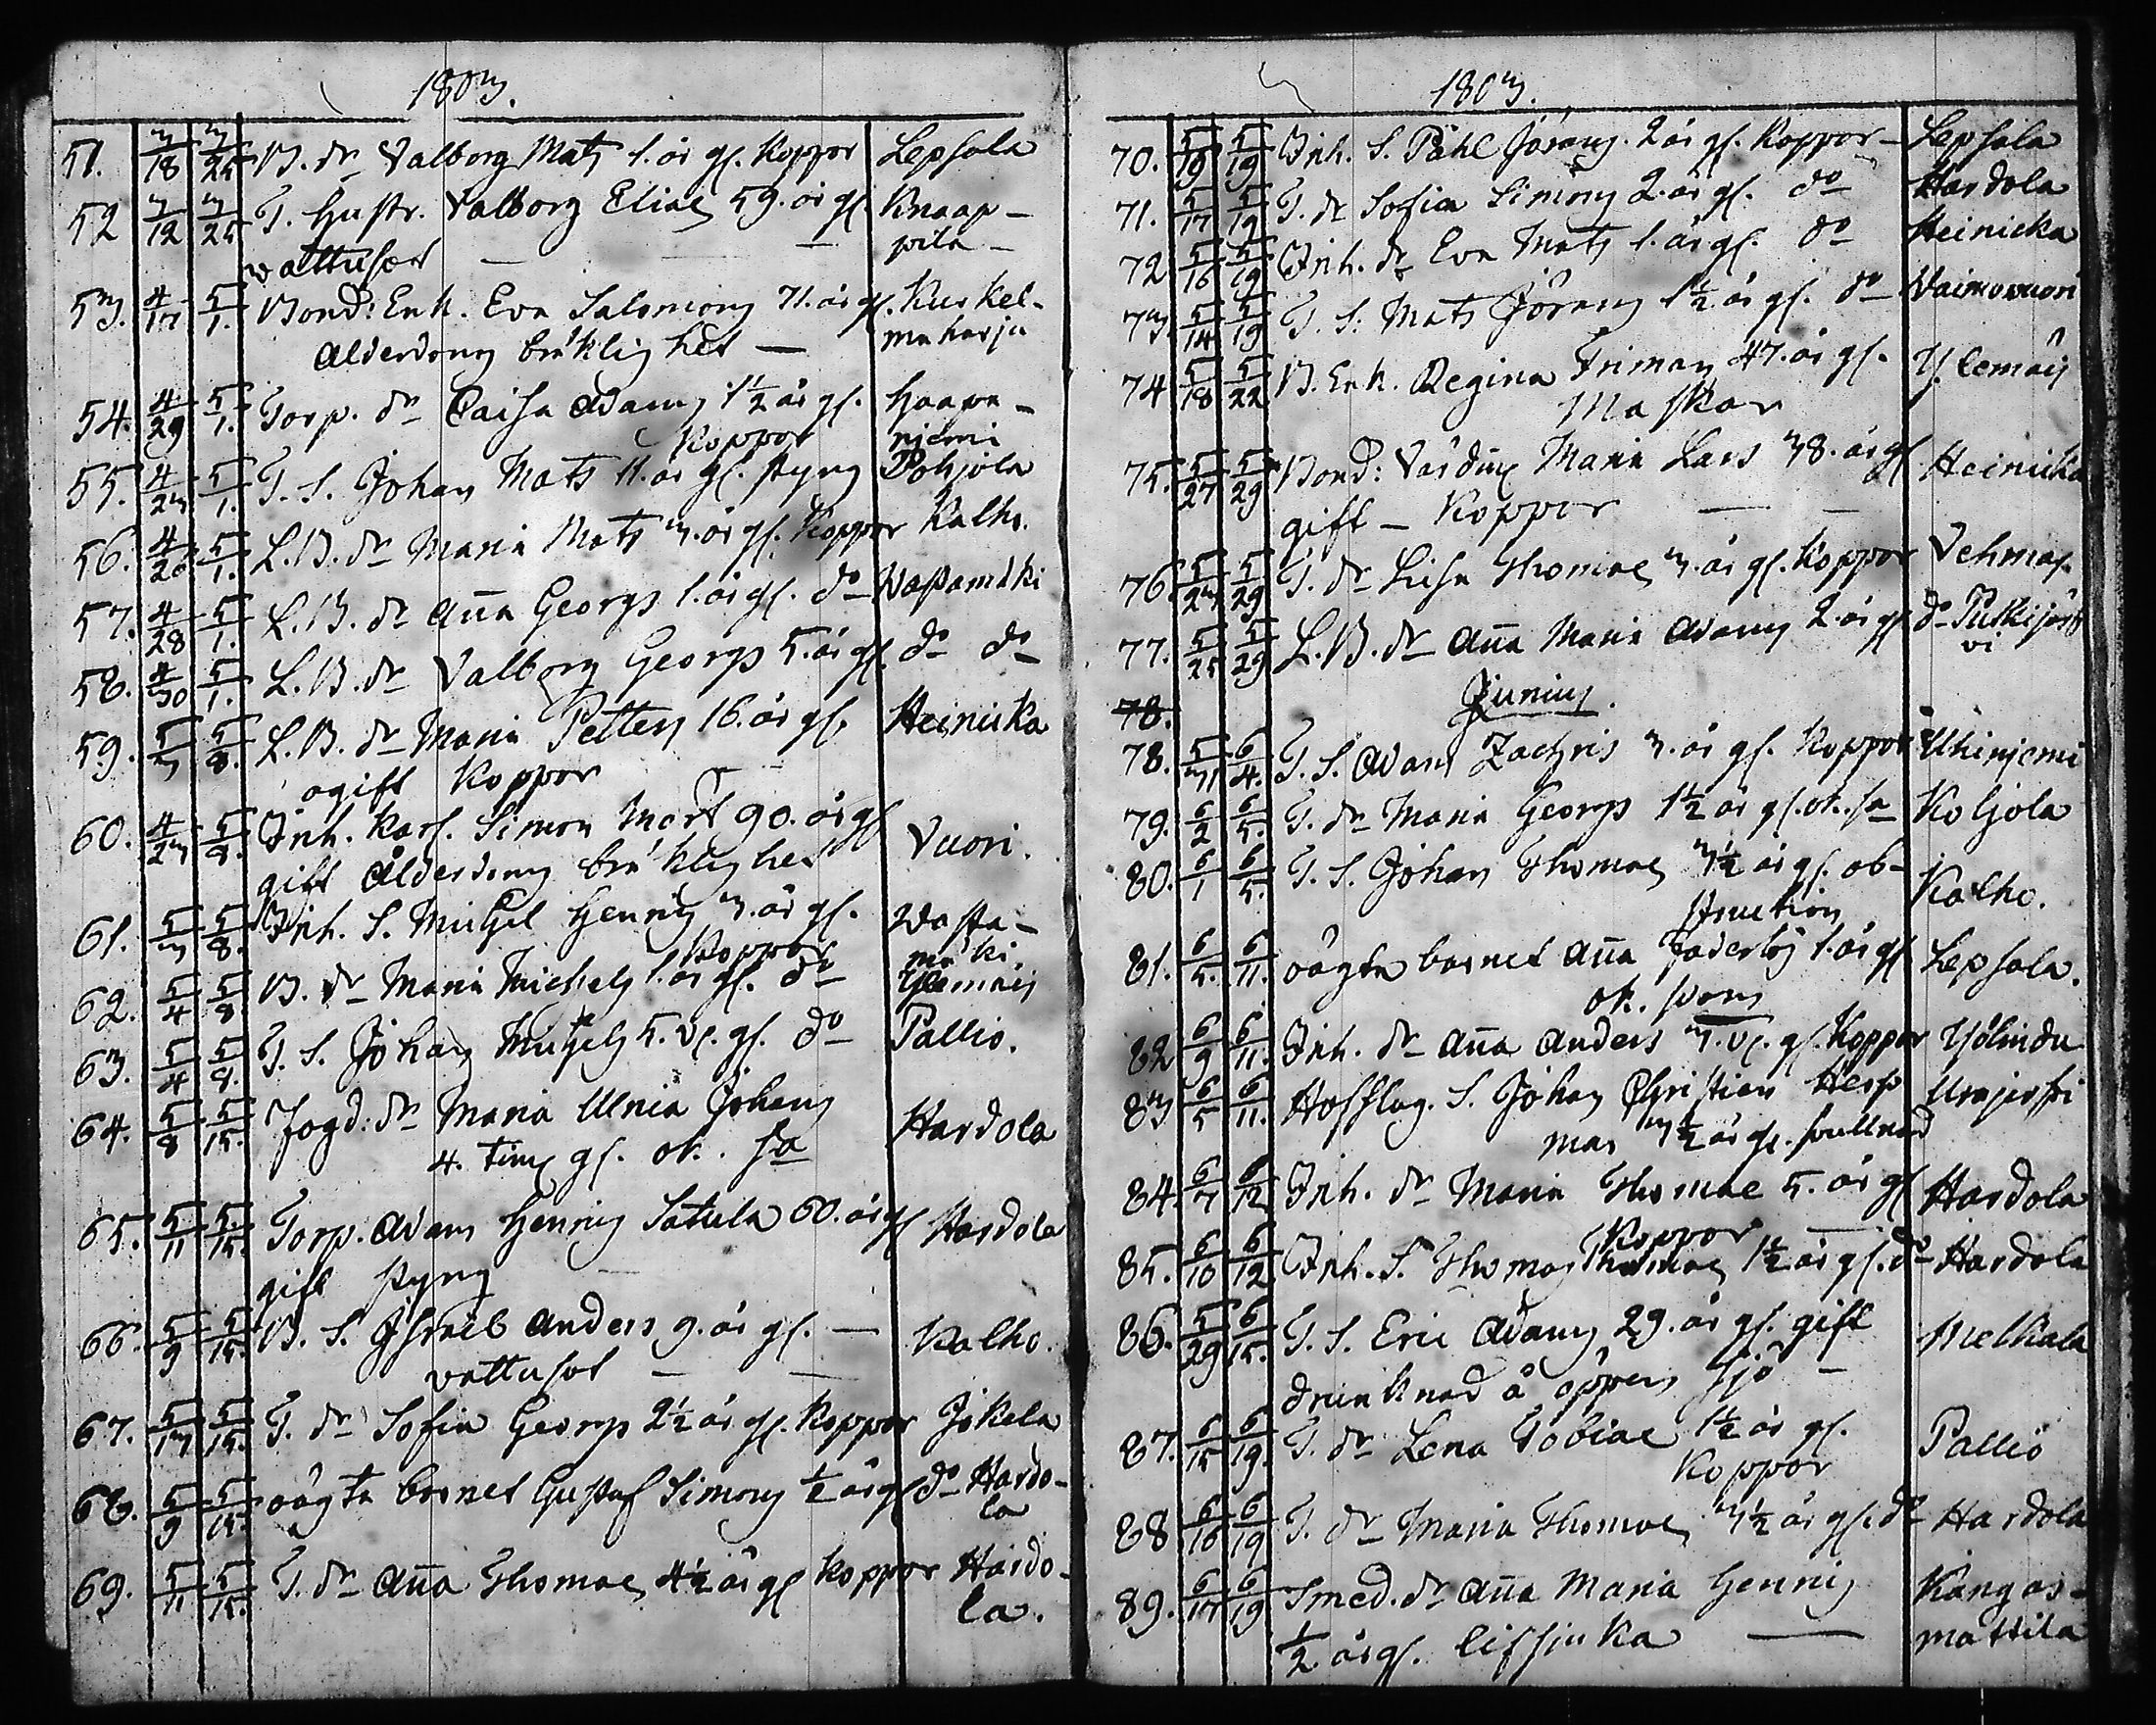 1803.
51. 3/18 3/25 B. dr Valborg Mats 1. år gl. Koppor Lepsala
52 3/12 3/25 T. Hustr. Valborg Eliae 59. år gl. Knaap-
vattusot — — pila —
53. 4/17 5/1. Bond: Enk. Eva Salomons 71. år gl. Kuckel-
Alderdoms bräklighet — maharju
54. 4/29 5/1. Torp. dr Caisa Adams 1½ år gl. Haapa-
Koppor njemi
55. 4/23 5/1. T. S. Johan Mats 11. år gl. styng Pohjola
56. 4/28 5/1. L. B. dr Maria Mats 3. år gl. Koppor Kalho.
57. 4/28 5/1. L. B. dr Aña Georgs 1. år gl. do Vastamäki
58. 4/30 5/1. L. B. dr Valborg Georgs 5. år gl. do do
59. 5/3 5/8. L. B. dr Maria Petters 16. år gl. Heinicka
ogift Koppor
60. 4/23 5/8. Inh. Karl. Simon Mört 90. år gl
gift Ålderdoms bräklighet Vuori.
61. 5/3 5/8. Inh. S. Michel Henrics 3. år gl. Wasta-
Koppor mäki
62. 5/4 5/8 B. dr Maria Michels 1. år gl. do Ylemäij
63. 5/4 5/8. T. S. Johan Michels 5. v. gl. do Pallio.
64. 5/8 5/15. Fogd: dr Maria Ulrica Johans
4. tim gl. ok. sa Hardola
65. 5/11 5/15. Torp. Adam Henrics Satula 60. år gl Hardola
gift styng
66. 5/9 5/15. B. S. Israel Anders 9. år gl. — Kalho.
vattusot — —
67. 5/13 5/15. T. dr Sofia Georgs 2½ år gl. Koppor Jokela
68. 5/9 5/15. oägta barnet Gustaf Simons ½ år gl do Hardo-
la
69. 5/11 5/15. T. dr Aña Thomae 4½ år gl Koppor Hardo-
la.
1803.
70. 5/19 5/19 Inh. S. Påhl Jörans. 2 år gl. Koppor — Lepsala
71. 5/17 5/19 T. dr Sofia Simons 2. år gl. do Hardola
72 5/16 5/19 Inh. dr Eva Mats 1. år gl. do Heinicka
73. 5/14 5/19 T. S. Mats Jörans 1½ år gl. do Vaimovuori
74 5/18 5/22 B. Enk. Regina Friman 47. år gl. Ylemäij
Maskar
75. 5/27 5/29 Bond: Värdin Maria Lars 38. år gl Heinicka
gift — Koppor — —
76. 5/23 5/29 T. dr Lisa Thomae 3. år gl. Koppor Vehmas.
77. 5/25 5/29 L. B. dr Aña Maria Adams 2. år gl do Putkijär
vi
78. Junius.
78. 5/31 6/4. T. S. Adam Zachris 3. år gl. Koppor Uhinjemi
79. 6/2 6/5. T. dr Maria Georgs 1½ år gl. ok. sa Koljola
80. 6/1 6/5. T. S. Johan Thomae 3½ år gl. ob-
struction Kalho.
81. 6/5. 6/11. oägta barnet Aña faderlös 1. år gl Lepsala.
ok. barns
82 6/9 6/11. Inh. dr Aña Anders 3. v. gl. Koppor Yölindu
83 6/5 6/11. Hofslag. S. Johan Christian Hersp
man 3½ år gl. svullnad
84. 6/7 6/12 Inh. dr Maria Thomae 5. år gl Hardola
Koppor —
85. 6/10 6/12 Inh. S. Thomas Thomae 1½ år gl. do Hardola
86. 5/29 6/15. T. S. Eric Adams 29. år gl. gift
drunknad å öppen sjö — Melkala
87. 6/15 6/19. T. dr Lena Tobiae 1½ år gl.
Koppor Pallio
88 6/16 6/19 T. dr Maria Thomae 3½ år gl. do Hardola
89. 6/17 6/19 Smed. dr Aña Maria Henrics Kangas-
½ år gl. lifsjuka — mattila